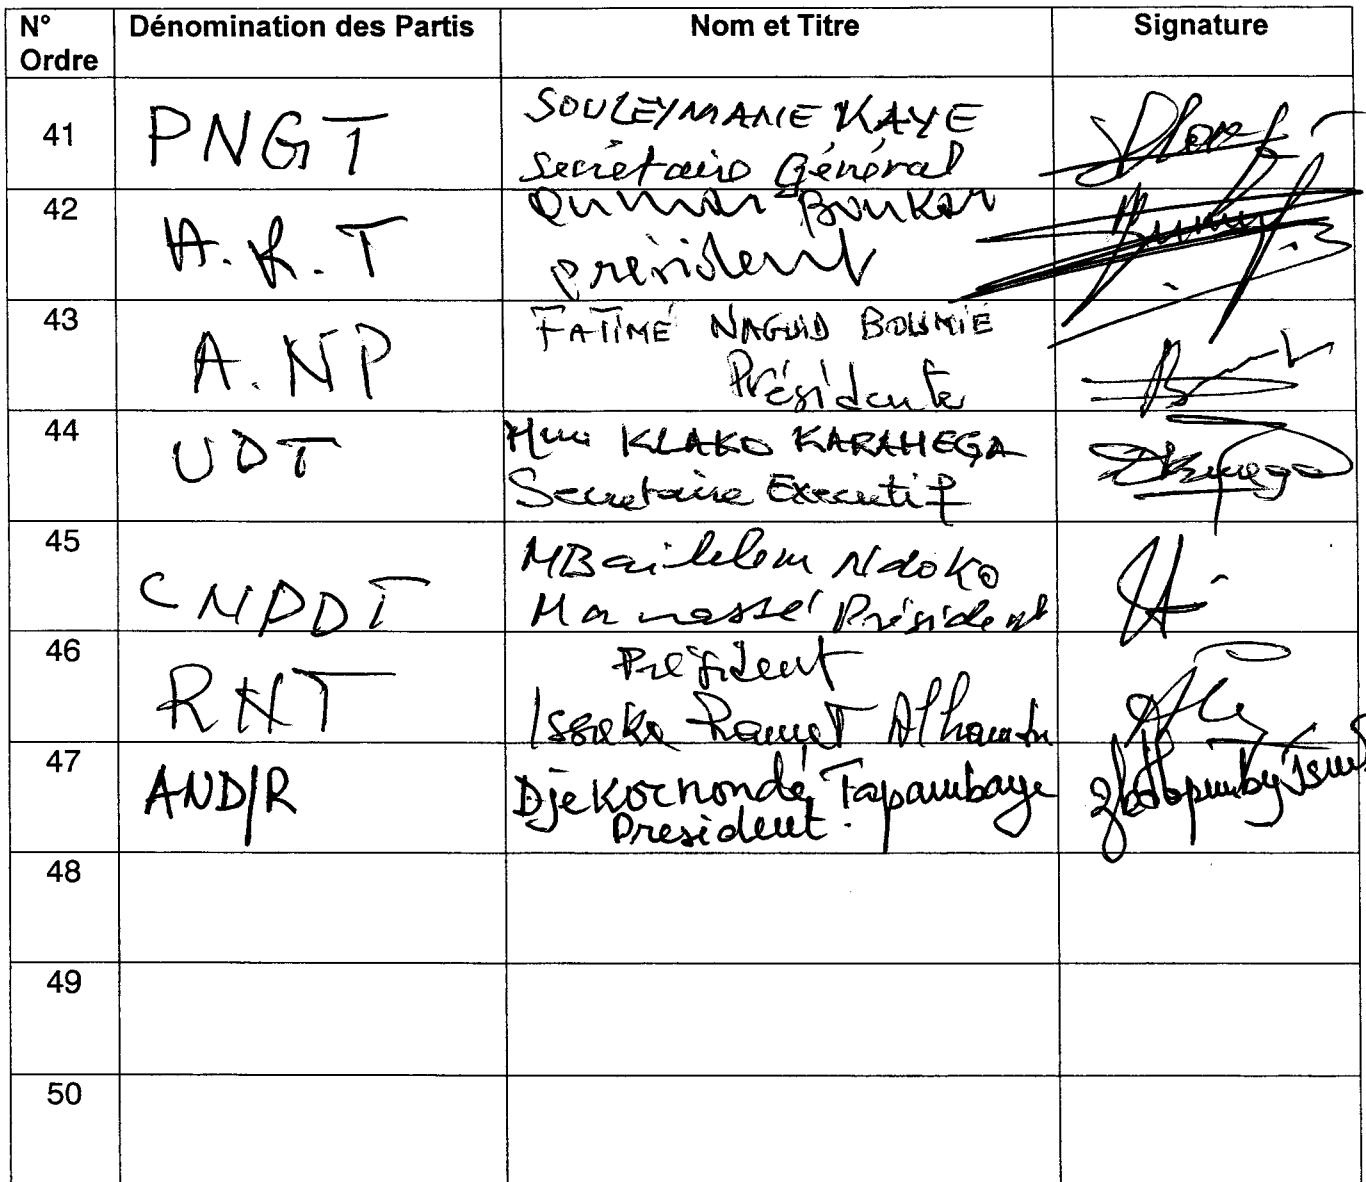 N° Ordre Dénomination des Partis Nom et Titre Signature
41 PNGT SOULEYMANE KAYE
Secrétaire Général
42 A.R.T Oumar Boukar
président
43 A.NP FATIMÉ NAGUID BOUMIE
Présidente
44 UDT KLAKO KARAHEGA
Secretaire Executif
45 CNPDT MBailelem Ndoko
Manassé Président
46 RNT Président
Issaka
47 AND/R Djekornondé Tapambaye
President.
48
49
50